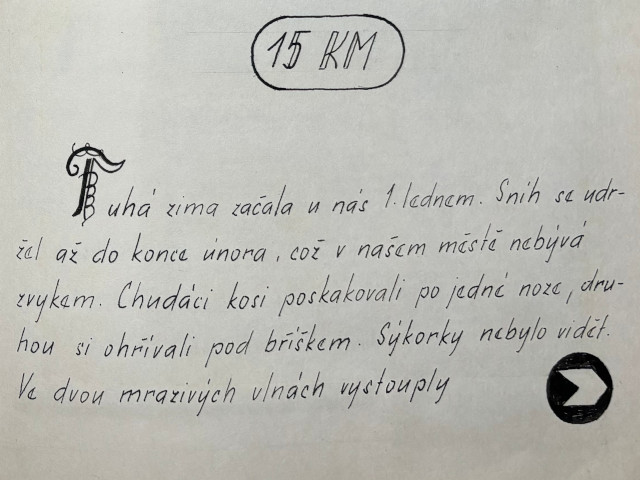 15 KM
Tuhá zima začala u nás 1. lednem. Sníh se udr-
žel až do konce února, což v našem městě nebývá
zvykem. Chudáci kosi poskakovali po jedné noze, dru-
hou si ohřívali pod bříškem. Sýkorky nebylo vidět.
Ve dvou mrazivých vlnách vystouply